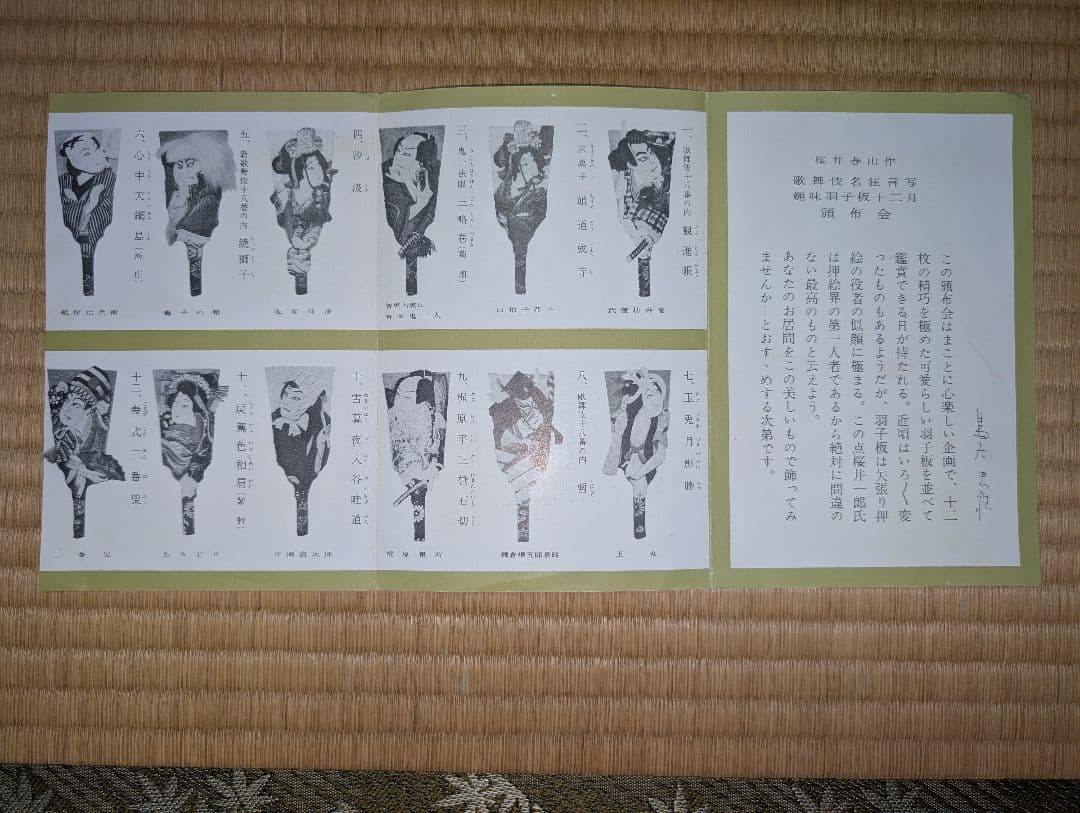 桜井春山作
歌舞伎名狂言写
趣味羽子板十二月
頒布会
この頒布会はまことに心楽しい企画で、十二
枚の精巧を極めた可愛らしい羽子板を並べて
鑑賞できる日が待たれる。近頃はいろ〱変
ったものもあるようだが、羽子板は矢張り押
絵の役者の似顔に極まる。この点桜井一郎氏
は押絵界の第一人者であるから絶対に間違の
ない最高のものと云えよう。
あなたのお居間をこの美しいもので飾ってみ
ませんか―とおすゝめする次第です。
一、歌舞伎十八番の内 勧進帳
武蔵坊弁慶
二、京鹿子娘道成寺
白拍子花子
三、鬼一法眼三略巻(菊畑)
四、汐汲
五、新歌舞伎十八番の内 鏡獅子
獅子の精
六、心中天網島(河庄)
紙屋治兵衛
七、玉兎月影勝
玉兎
八、歌舞伎十八番の内 暫
鎌倉権五郎景政
九、梶原平三誉石切
梶原景時
十、雪暮夜入谷畦道
片岡直次郎
十一、戻駕色相肩
十二、寿式三番叟
三番叟